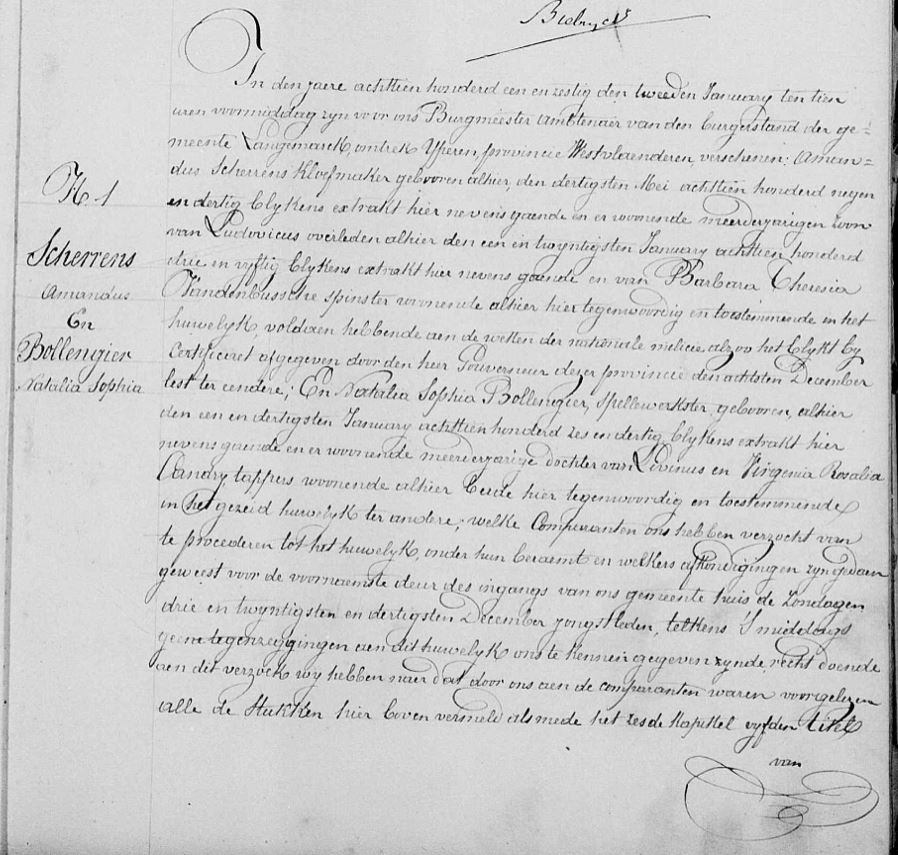 In den jaere achttien honderd een en zestig den tweeden January ten tien
uren voormiddag zyn voor ons Burgmeester ambtenaer van den burgerstand der ge=
meente Langemarck, omtrek Yperen, provincie Westvlaenderen, verschenen: Aman=
dus Scherrens Kloefmaker gebooren alhier, den dertigsten Mei achttien honderd negen
en dertig blykens extrakt hier nevensgaende en er woonende meerderjarigen zoon
van Ludovicus overleden alhier den een en twyntigsten January achttien honderd
drie en vyftig blykens extrakt hier nevens gaende en van Barbara Theresia
Vandenbussche spinster woonende alhier hier tegenwoordig en toestemmende in het
huwelyk, voldaen hebbende aen de wetten der nationale melicie alzoo het blykt by
Certificaet afgegeven door den heer Gouverneur dezer provincie den achtsten December
lest ter eendere; En Natalia Sophia Bollengier, spellewerkster, gebooren, alhier
den een en dertigsten January achttien honderd zes en dertig blykens extrakt hier
nevensgaende en er woonende meerderjarige dochter van Livinus en Virgenia Rosalia
Candry tappers woonende alhier beide hier tegenwoordig en toestemmende
in het gezeid huwelyk ter andere; welke Comparanten ons hebben verzocht van
te procederen tot het huwelyk, onder hun beraemt en welkers afkondigingen zyn gedaen
geweest voor de voornaemste deur des ingangs van ons gemeente huis de Zondagen
drie en twyntigsten en dertigsten December jongstleden, telkens S middags
geene tegenzeggingen aen dit huwelyk ons te kennen gegeven zynde, recht doende
aen dit verzoek wy hebben naer dat door ons aen de comparanten waren voorgelezen
alle de Stukken hier boven vermeld alsmede het zesde Kapittel vyfden titel
van
N. 1
Scherrens
Amandus
En
Bollengier
Natalia Sophia